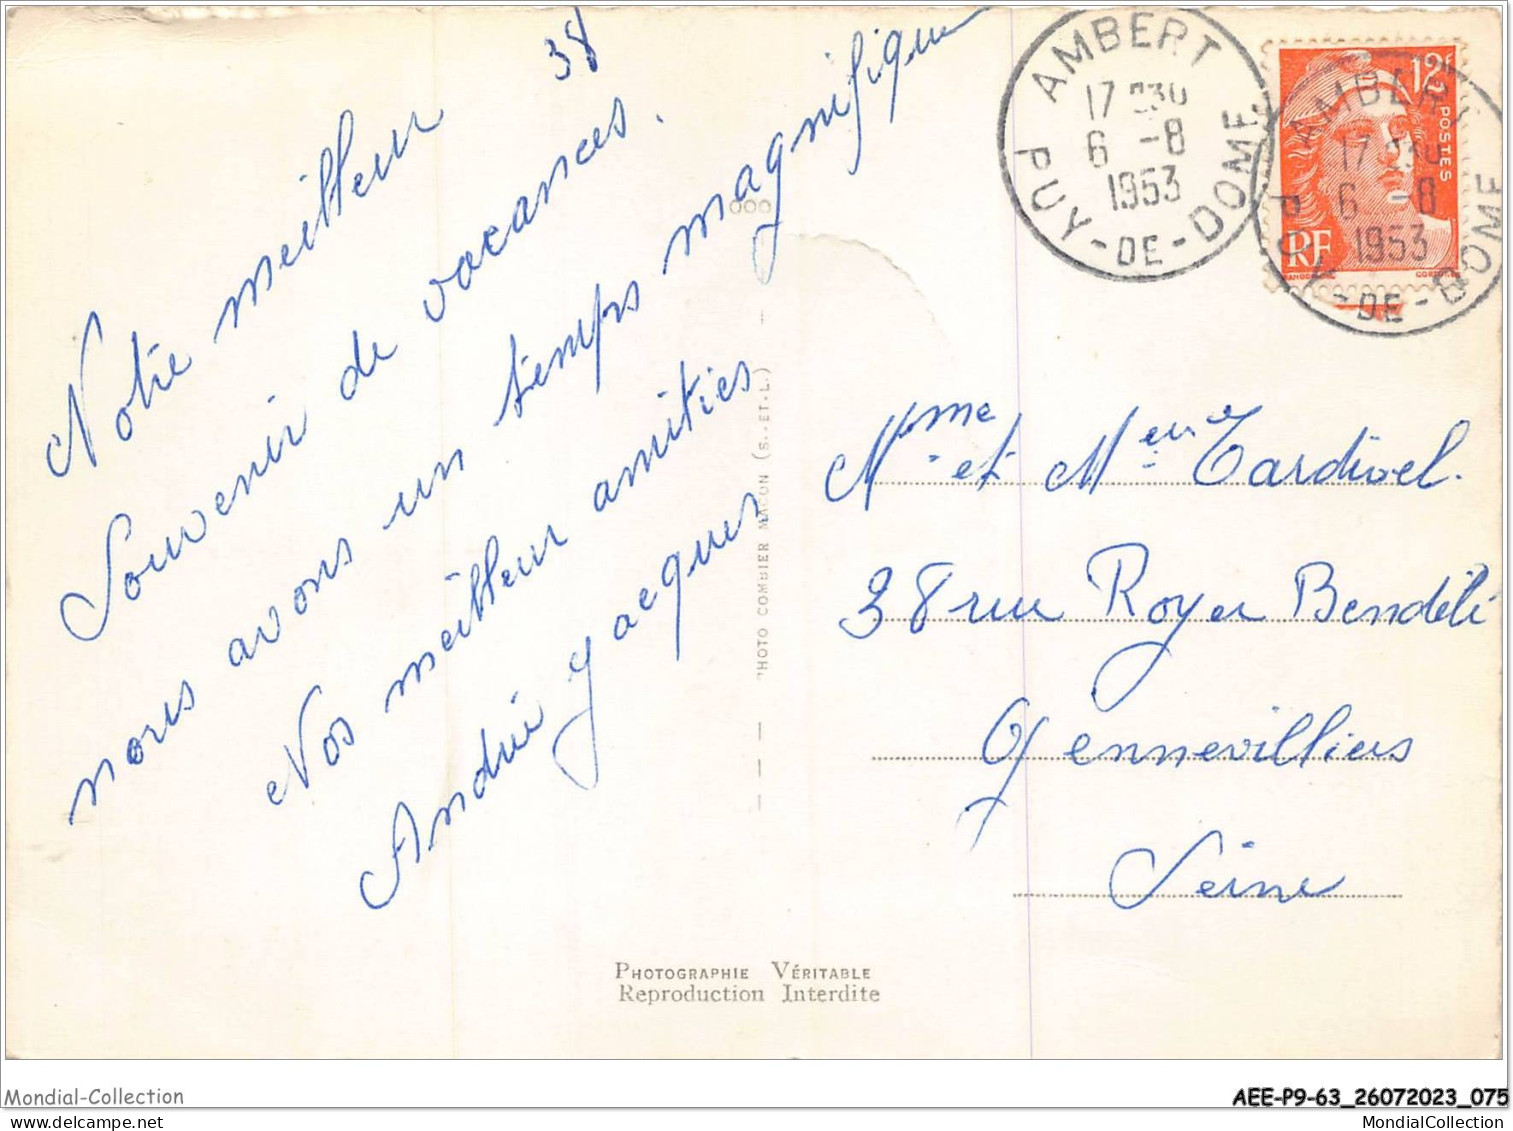 38
Notre meilleur
Souvenir de vacances.
nous avons un temps magnifique
Nos meilleur amities
André Jacques
PHOTO COMBIER MACON (S.-ET-L.)
AMBERT
17 H30
6 -8
1953
PUY-DE-DOME
AMBERT
17 H30
6 -8
1953
PUY-DE-DOME
12F
POSTES
RF
GANDON
CORTOT
Mme et Meur Tardivel.
38 rue Royer Bendélé
Gennevilliers
Seine
PHOTOGRAPHIE VÉRITABLE
Reproduction Interdite
Mondial-Collection
38
AEE-P9-63_26072023_075
MondialCollection